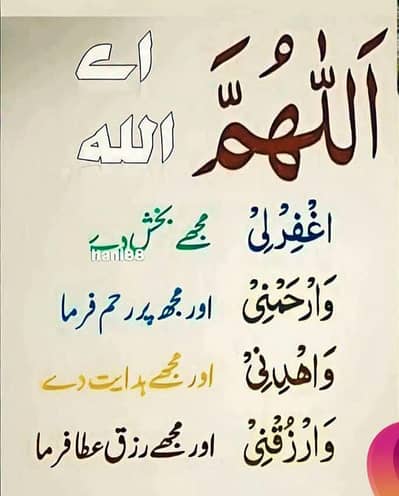 اَللّٰهُمَّ اے اللہ
اغْفِرْ لِیْ مجھے بخش دے
hani88
وَارْحَمْنِیْ اور مجھ پر رحم فرما
وَاهْدِنِیْ اور مجھے ہدایت دے
وَارْزُقْنِیْ اور مجھے رزق عطا فرما